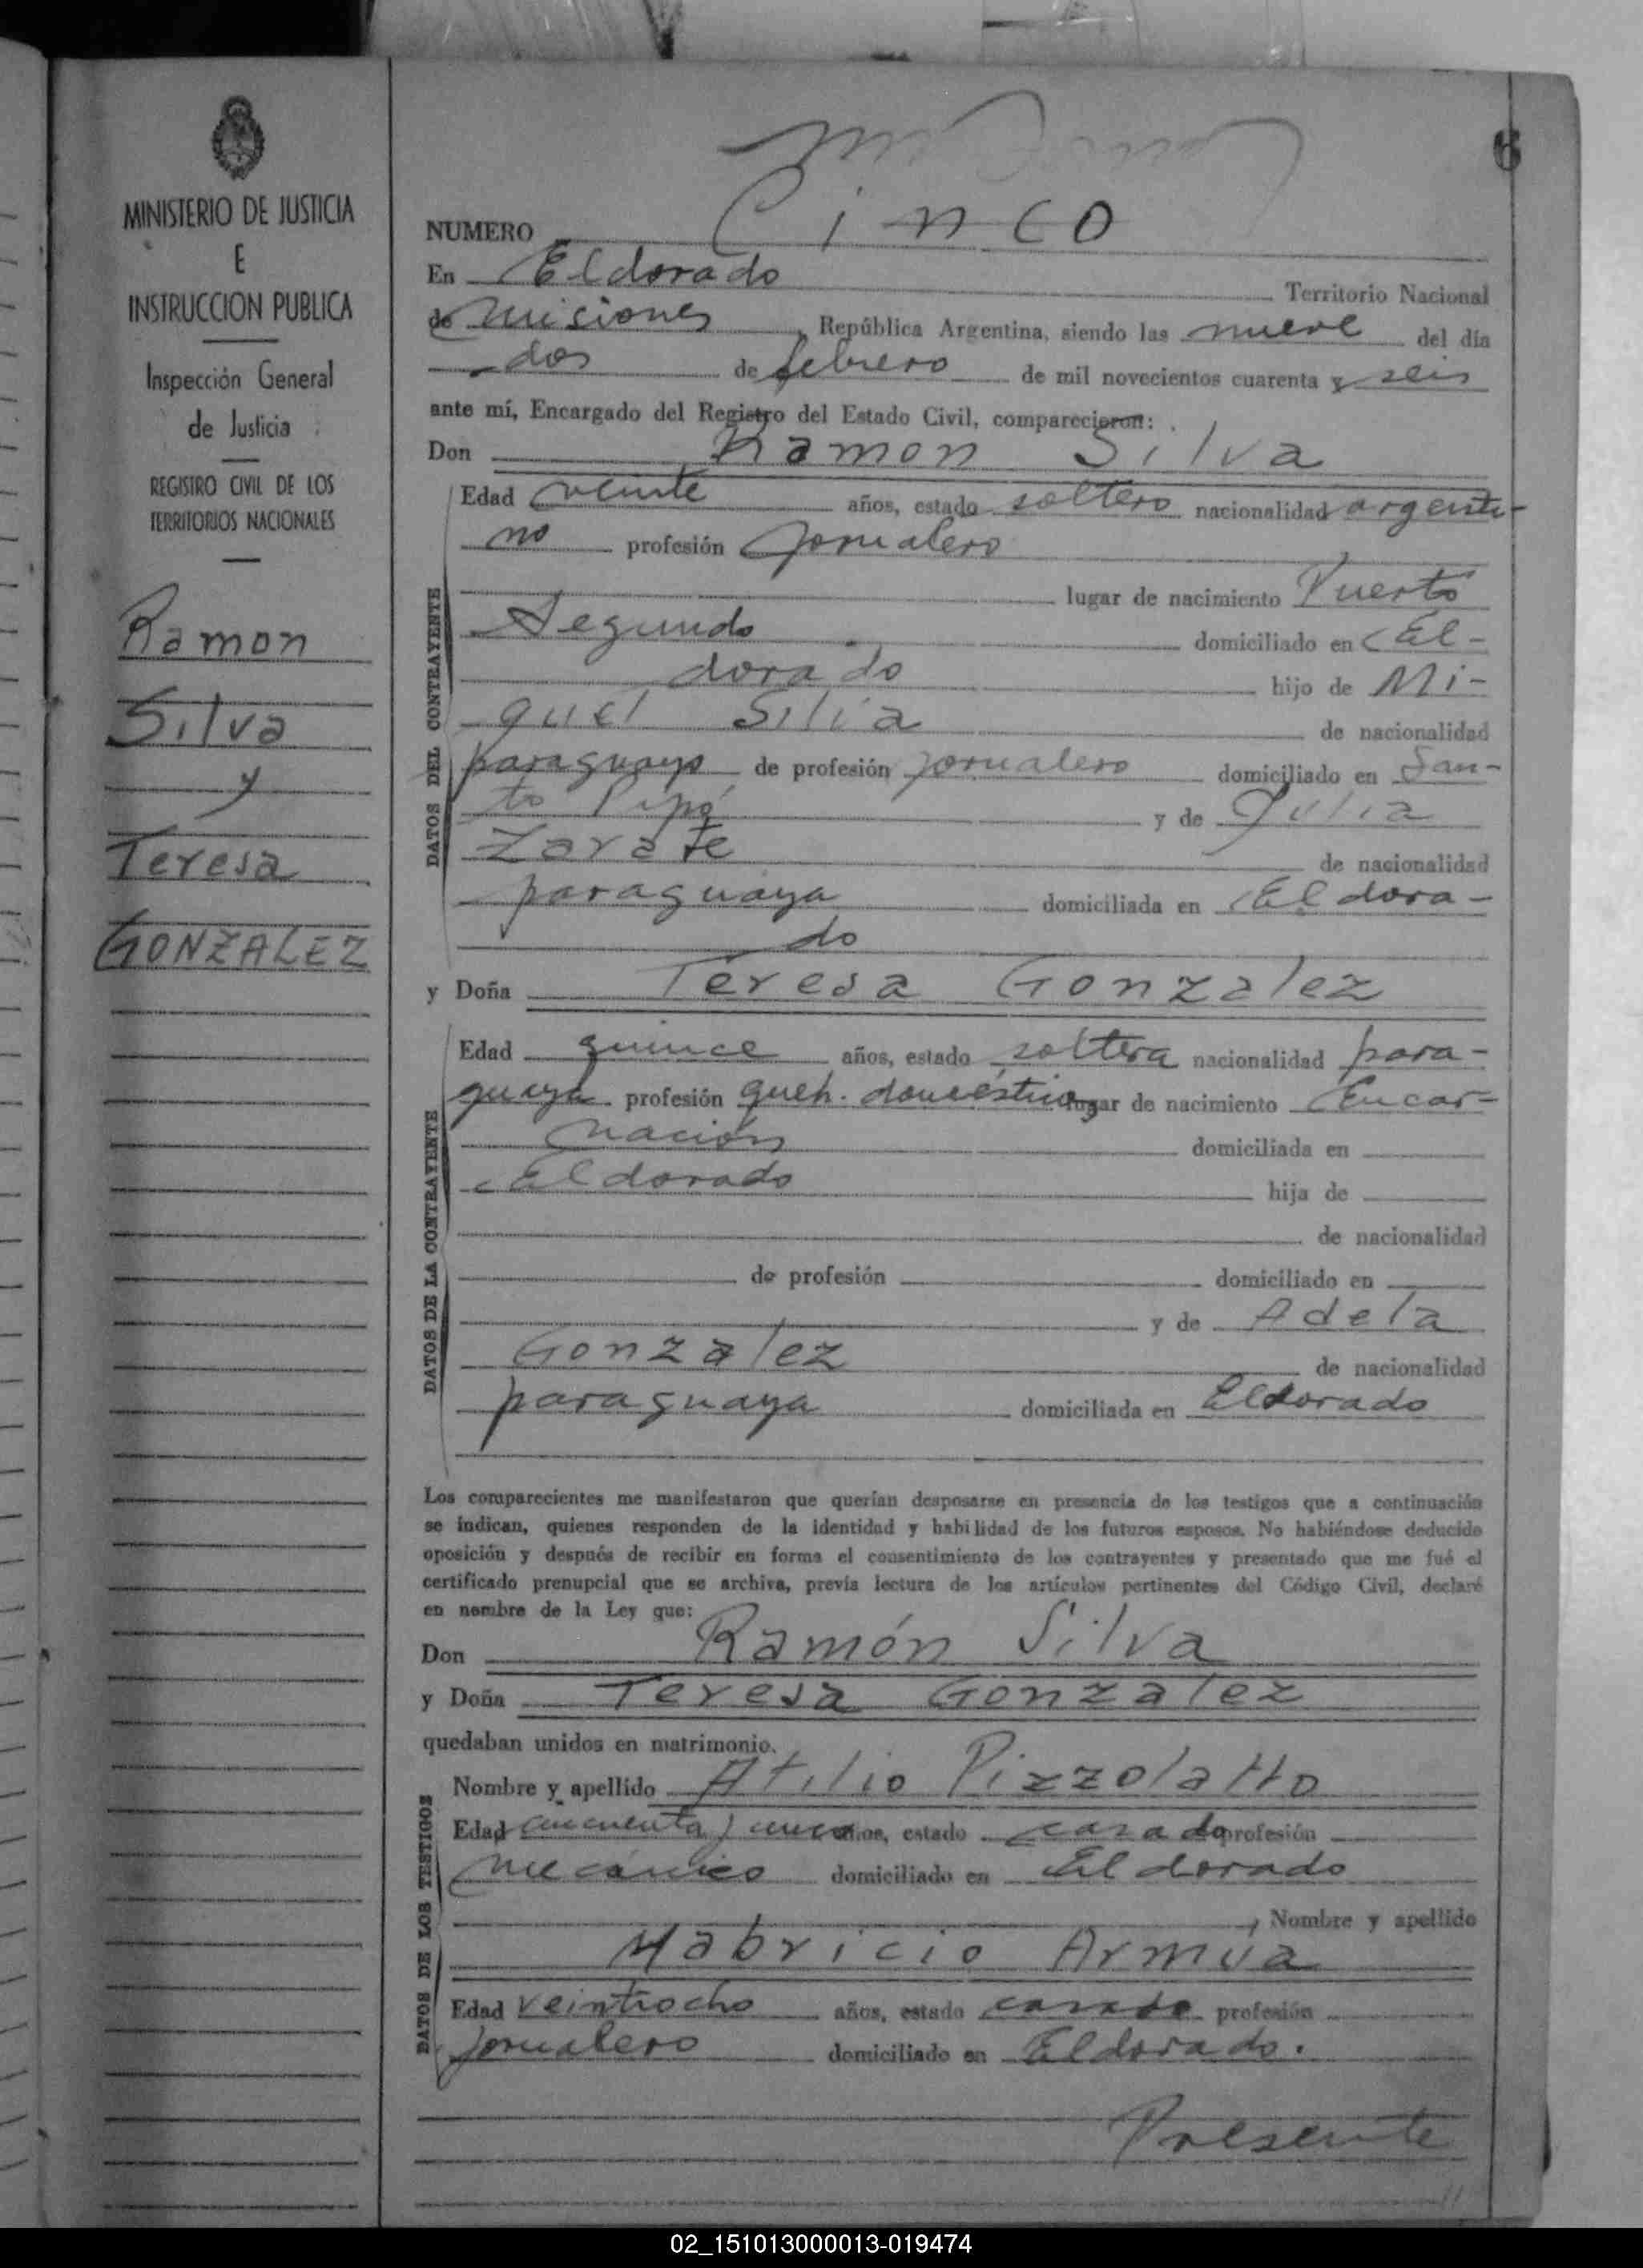 MINISTERIO DE JUSTICIA
E
INSTRUCCION PUBLICA
Inspección General
de Justicia
REGISTRO CIVIL DE LOS
TERRITORIOS NACIONALES
Ramon
Silva
y
Teresa
GONZALEZ
6
NUMERO Cinco
En Eldorado Territorio Nacional
de Misiones, República Argentina, siendo las nueve del día
dos de febrero de mil novecientos cuarenta y seis
ante mí, Encargado del Registro del Estado Civil, comparecieron:
Don Ramon Silva
DATOS DEL CONTRAYENTE
Edad veinte años, estado soltero nacionalidad argenti-
no profesión Jornalero
lugar de nacimiento Puerto
Segundo domiciliado en El-
dorado hijo de Mi-
guel Silva de nacionalidad
paraguayo de profesión jornalero domiciliado en San-
to Pipó y de Julia
Zarate de nacionalidad
paraguaya domiciliada en Eldora-
do
y Doña Teresa Gonzalez
DATOS DE LA CONTRAYENTE
Edad quince años, estado soltera nacionalidad para-
guaya profesión queh. domésticos lugar de nacimiento Encar-
nación domiciliada en
Eldorado hija de
de nacionalidad
de profesión domiciliado en
y de Adela
Gonzalez de nacionalidad
paraguaya domiciliada en Eldorado
Los comparecientes me manifestaron que querían desposarse en presencia de los testigos que a continuación
se indican, quienes responden de la identidad y habilidad de los futuros esposos. No habiéndose deducido
oposición y después de recibir en forma el consentimiento de los contrayentes y presentado que me fué el
certificado prenupcial que se archiva, previa lectura de los artículos pertinentes del Código Civil, declaré
en nombre de la Ley que:
Don Ramón Silva
y Doña Teresa Gonzalez
quedaban unidos en matrimonio.
DATOS DE LOS TESTIGOS
Nombre y apellido Atilio Pizzolatto
Edad cincuenta y años, estado casado profesión
mecánico domiciliado en Eldorado
, Nombre y apellido
Mabricio Armúa
Edad veintiocho años, estado casado profesión
jornalero domiciliado en Eldorado.
Presente
02_151013000013-019474